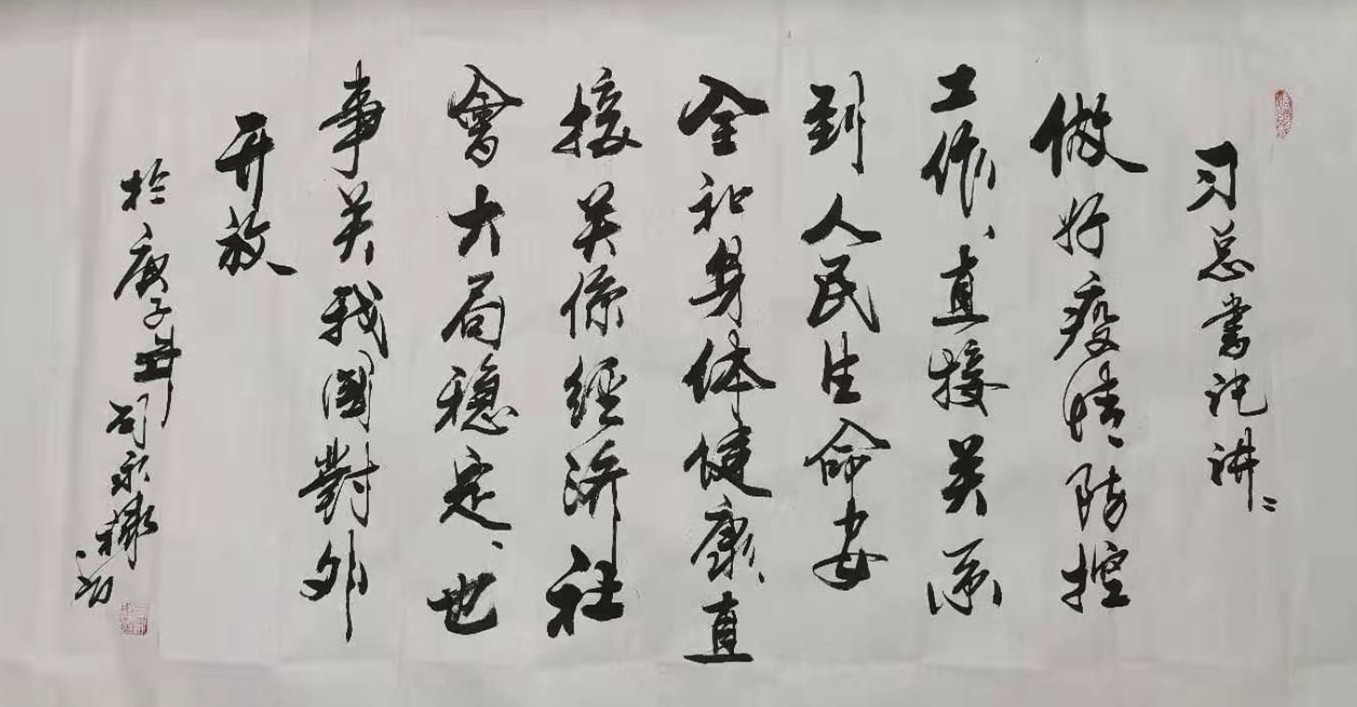 习总書记讲:
做好疫情、防控
工作、直接关系
到人民生命安
全和身体健康、直
接关係經济社
會大局稳定、也
事关我國對外
开放
於庚子年司永